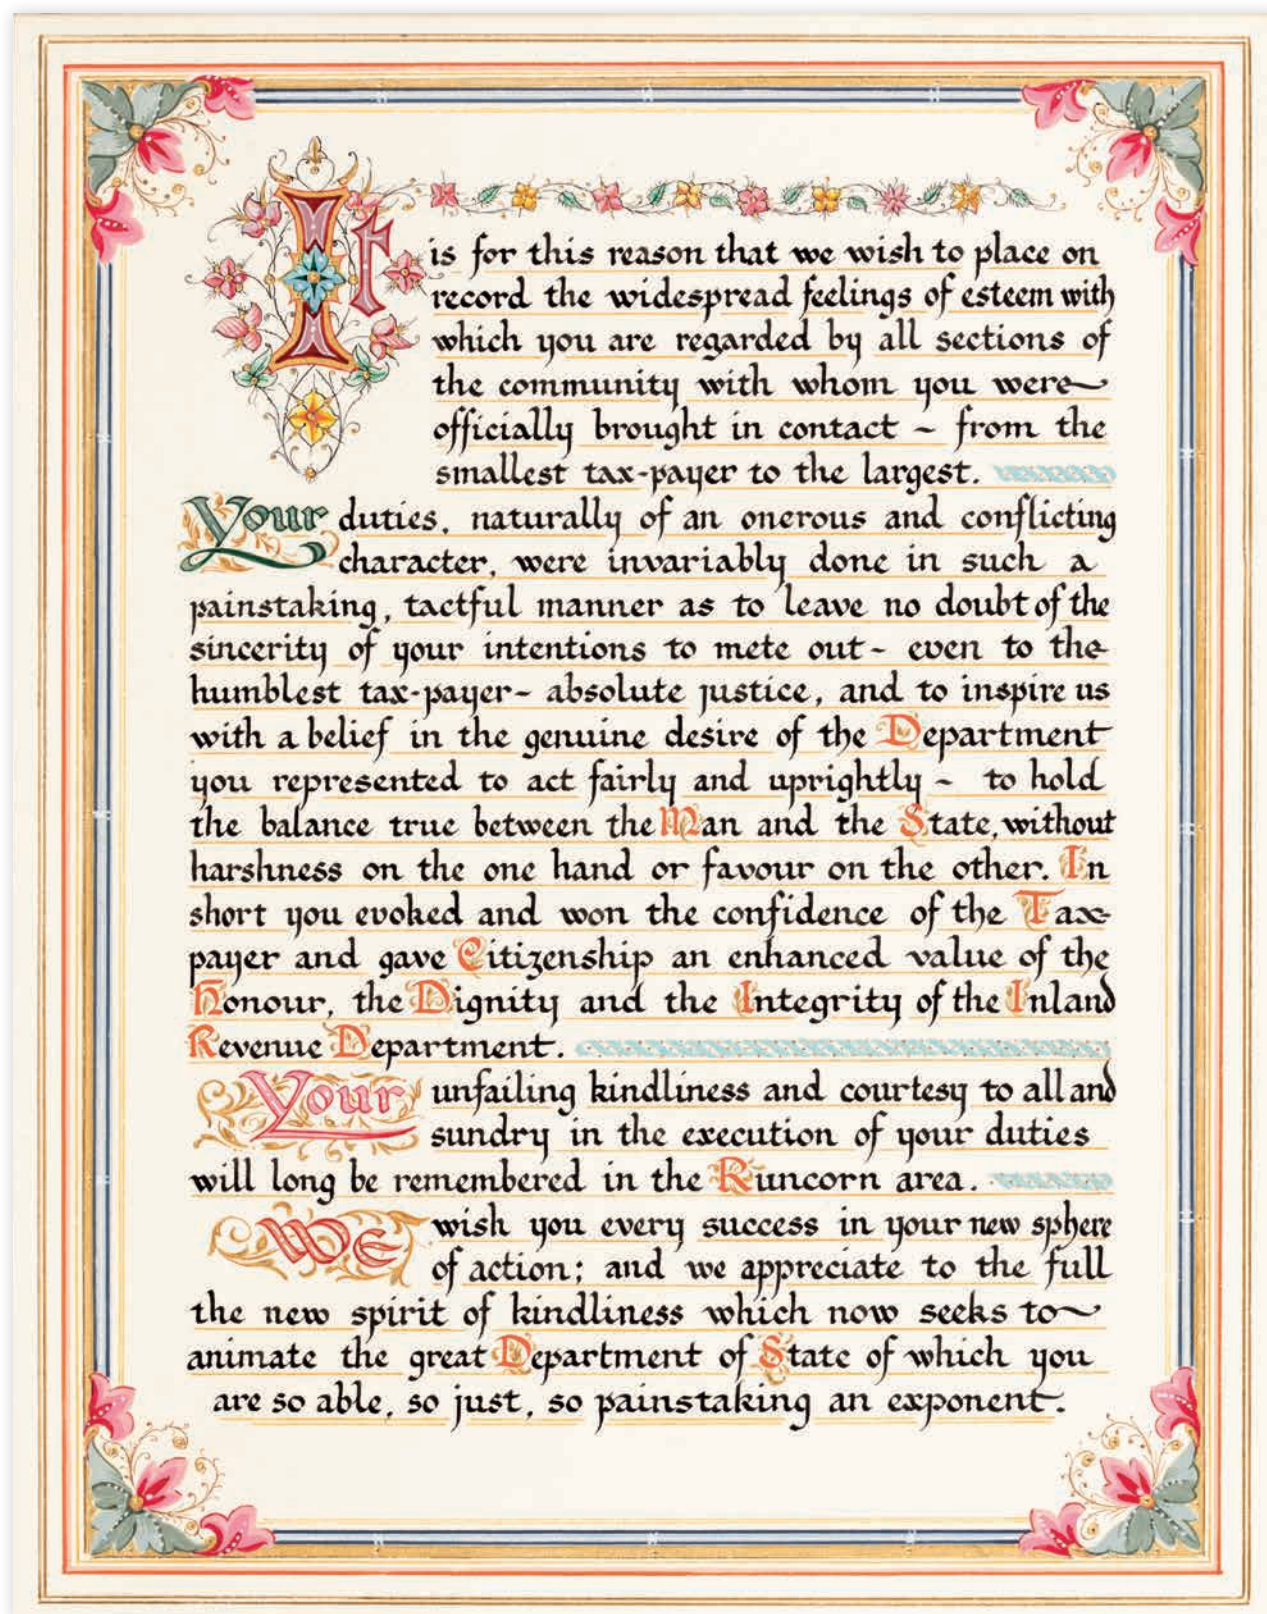 It is for this reason that we wish to place on
record the widespread feelings of esteem with
which you are regarded by all sections of
the community with whom you were
officially brought in contact ~ from the
smallest tax-payer to the largest.
Your duties, naturally of an onerous and conflicting
character, were invariably done in such a
painstaking, tactful manner as to leave no doubt of the
sincerity of your intentions to mete out - even to the
humblest tax-payer - absolute justice, and to inspire us
with a belief in the genuine desire of the Department
you represented to act fairly and uprightly - to hold
the balance true between the Man and the State, without
harshness on the one hand or favour on the other. In
short you evoked and won the confidence of the Tax-
payer and gave Citizenship an enhanced value of the
Honour, the Dignity and the Integrity of the Inland
Revenue Department.
Your unfailing kindliness and courtesy to all and
sundry in the execution of your duties
will long be remembered in the Runcorn area.
We wish you every success in your new sphere
of action; and we appreciate to the full
the new spirit of kindliness which now seeks to
animate the great Department of State of which you
are so able, so just, so painstaking an exponent.